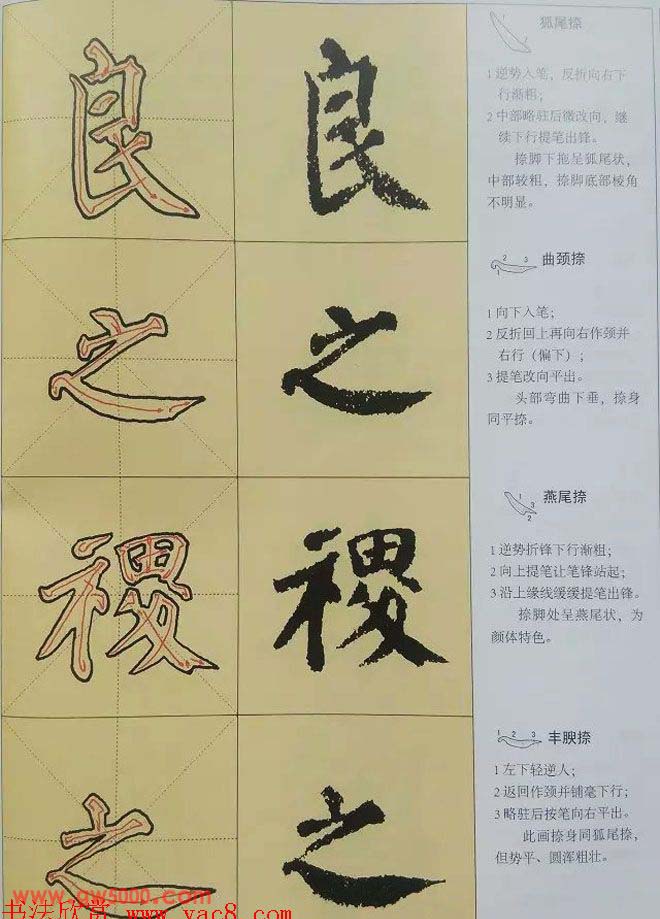 良 良
狐尾捺
1 逆势入笔，反折向右下
行渐粗；
2 中部略驻后微改向，继
续下行提笔出锋。
捺脚下拖呈狐尾状，
中部较粗，捺脚底部棱角
不明显。
之 之
曲颈捺
1 向下入笔；
2 反折回上再向右作颈并
右行（偏下）；
3 提笔改向平出。
头部弯曲下垂，捺身
同平捺。
禝 禝
燕尾捺
1 逆势折锋下行渐粗；
2 向上提笔让笔锋站起；
3 沿上缘线缓缓提笔出锋。
捺脚处呈燕尾状，为
颜体特色。
之 之
丰腴捺
1 左下轻逆人；
2 返回作颈并铺毫下行；
3 略驻后按笔向右平出。
此画捺身同狐尾捺，
但势平、圆浑粗壮。
www.gw5000.com
书法欣赏 www.yac8.com